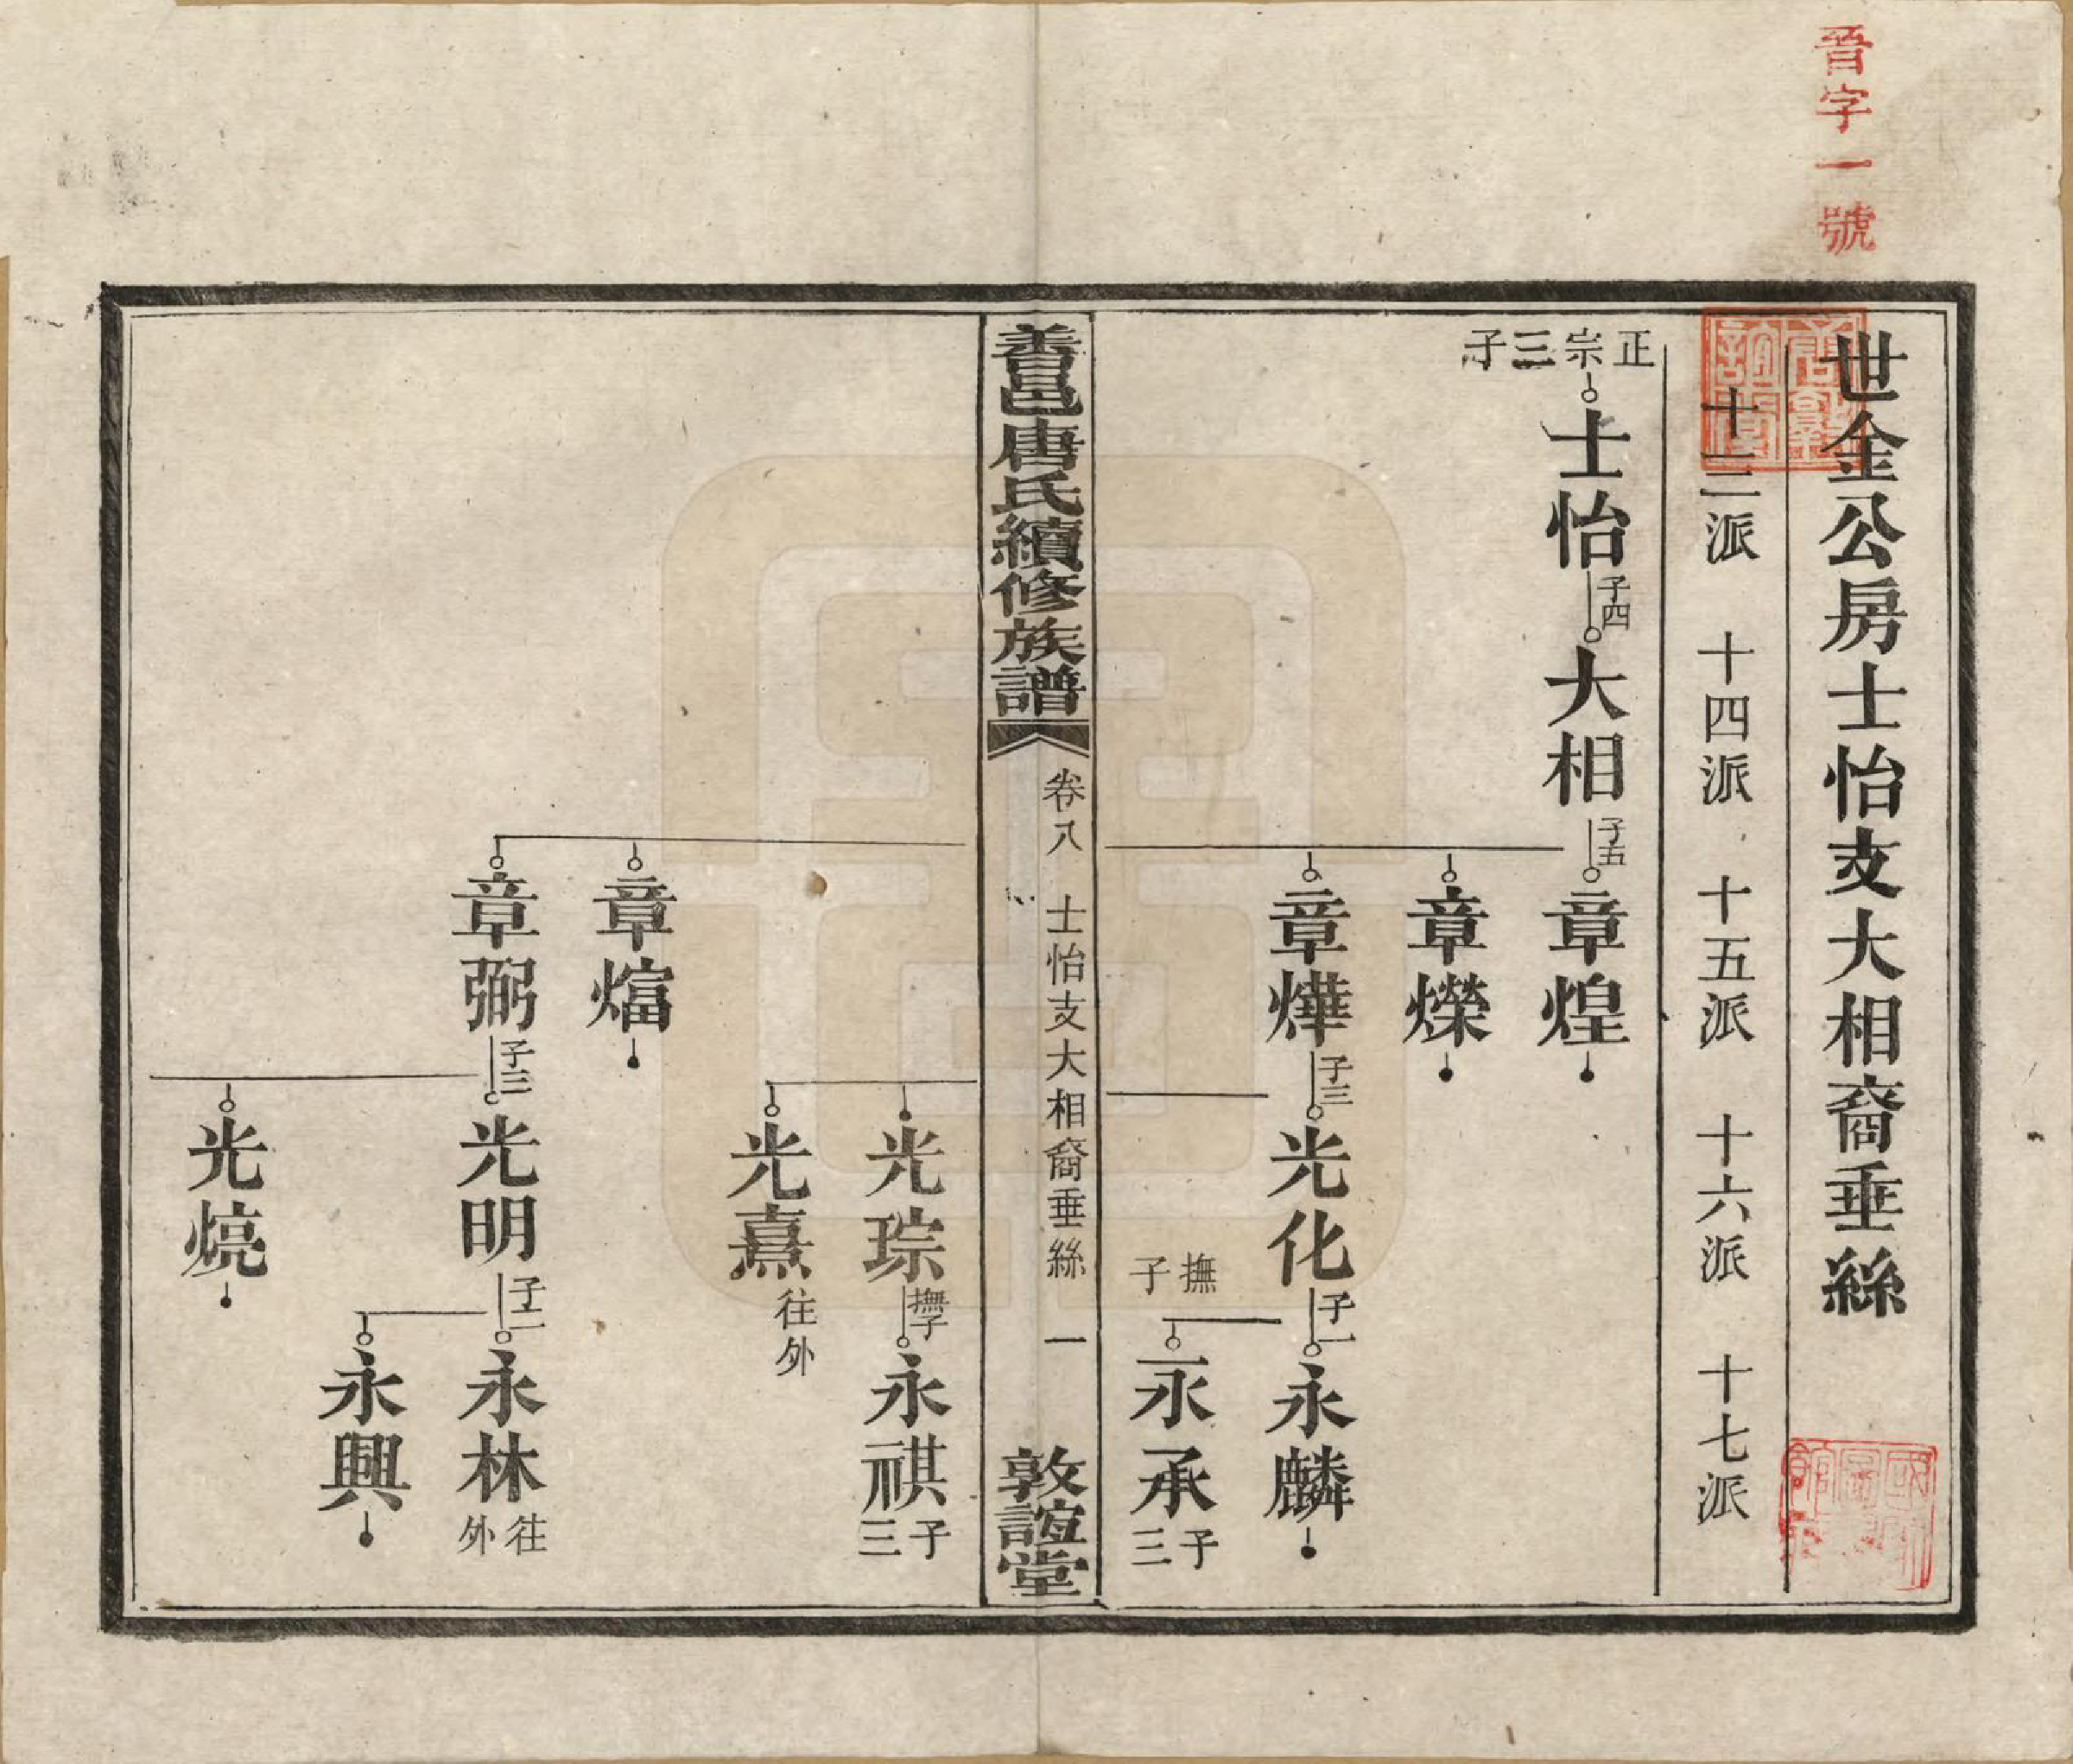 晉字一號
世全公房士怡支大相裔垂絲
十三派　十四派　十五派　十六派　十七派
正宗三子
士怡
子四
大相
子五
章煌
章爍
章燁
子三
光化
子二
永麟
撫子
永承
子三
善邑唐氏續修族譜
卷八　士怡支大相裔垂絲　一
敦誼堂
光琮
撫子
永祺
子三
光熹
往外
章煏
章弼
子三
光明
子二
永林
往外
永興
光熇